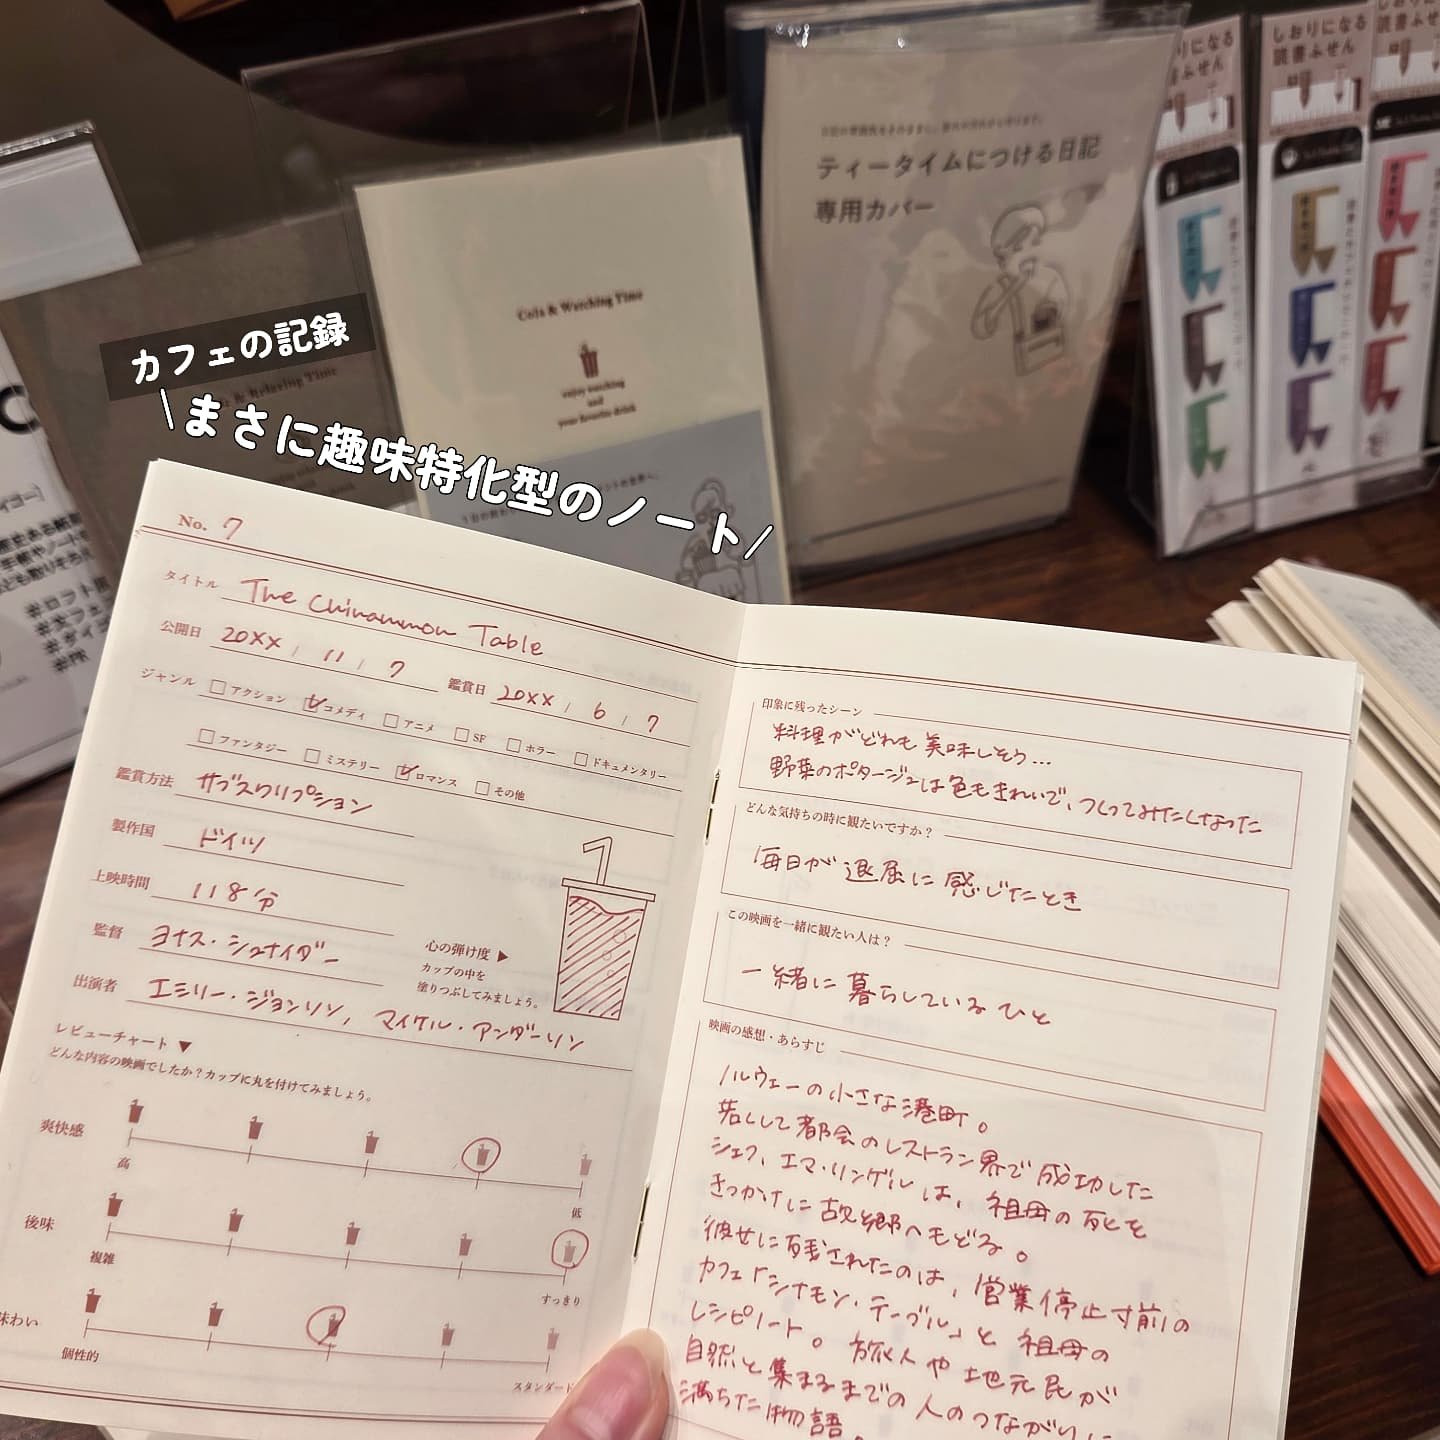 カフェの記録
\まさに趣味特化型のノート/
ティータイムにつける日記
専用カバー
Cola & Watching Time
enjoy watching
and
your favorite drink
& Relaxing Time
しおりになる
読書ふせん
しおりになる
読書ふせん
No. 7
タイトル The Chinammon Table
公開日 20XX / 11 / 7 鑑賞日 20XX / 6 / 7
ジャンル □アクション ☑コメディ □アニメ □SF □ホラー □ドキュメンタリー
□ファンタジー □ミステリー ☑ロマンス □その他
鑑賞方法 サブスクリプション
製作国 ドイツ
上映時間 118分
監督 ヨナス・シュナイダー
出演者 エミリー・ジョンソン, マイケル・アンダーソン
心の弾け度 ▶
カップの中を
塗りつぶしてみましょう。
レビューチャート ▼
どんな内容の映画でしたか？カップに丸を付けてみましょう。
爽快感
高 低
後味
複雑 すっきり
味わい
個性的 スタンダード
印象に残ったシーン
料理がどれも美味しそう…
野菜のポタージュは色もきれいで、つくってみたくなった
どんな気持ちの時に観たいですか？
毎日が退屈に感じたとき
この映画を一緒に観たい人は？
一緒に暮らしているひと
映画の感想・あらすじ
ノルウェーの小さな港町。
若くして都会のレストラン界で成功した
シェフ、エマ・リンゲルは、祖母の死を
きっかけに故郷へもどる。
彼女に残されたのは、営業停止寸前の
カフェ「シナモン・テーブル」と祖母の
レシピノート。旅人や地元民が
自然と集まるまでの人のつながりに
満ちた物語。